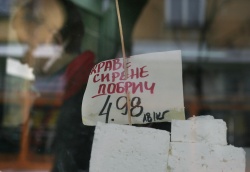 КРАВЕ
СИРЕНЕ
ДОБРИЧ
4.98 ЛВ/КГ